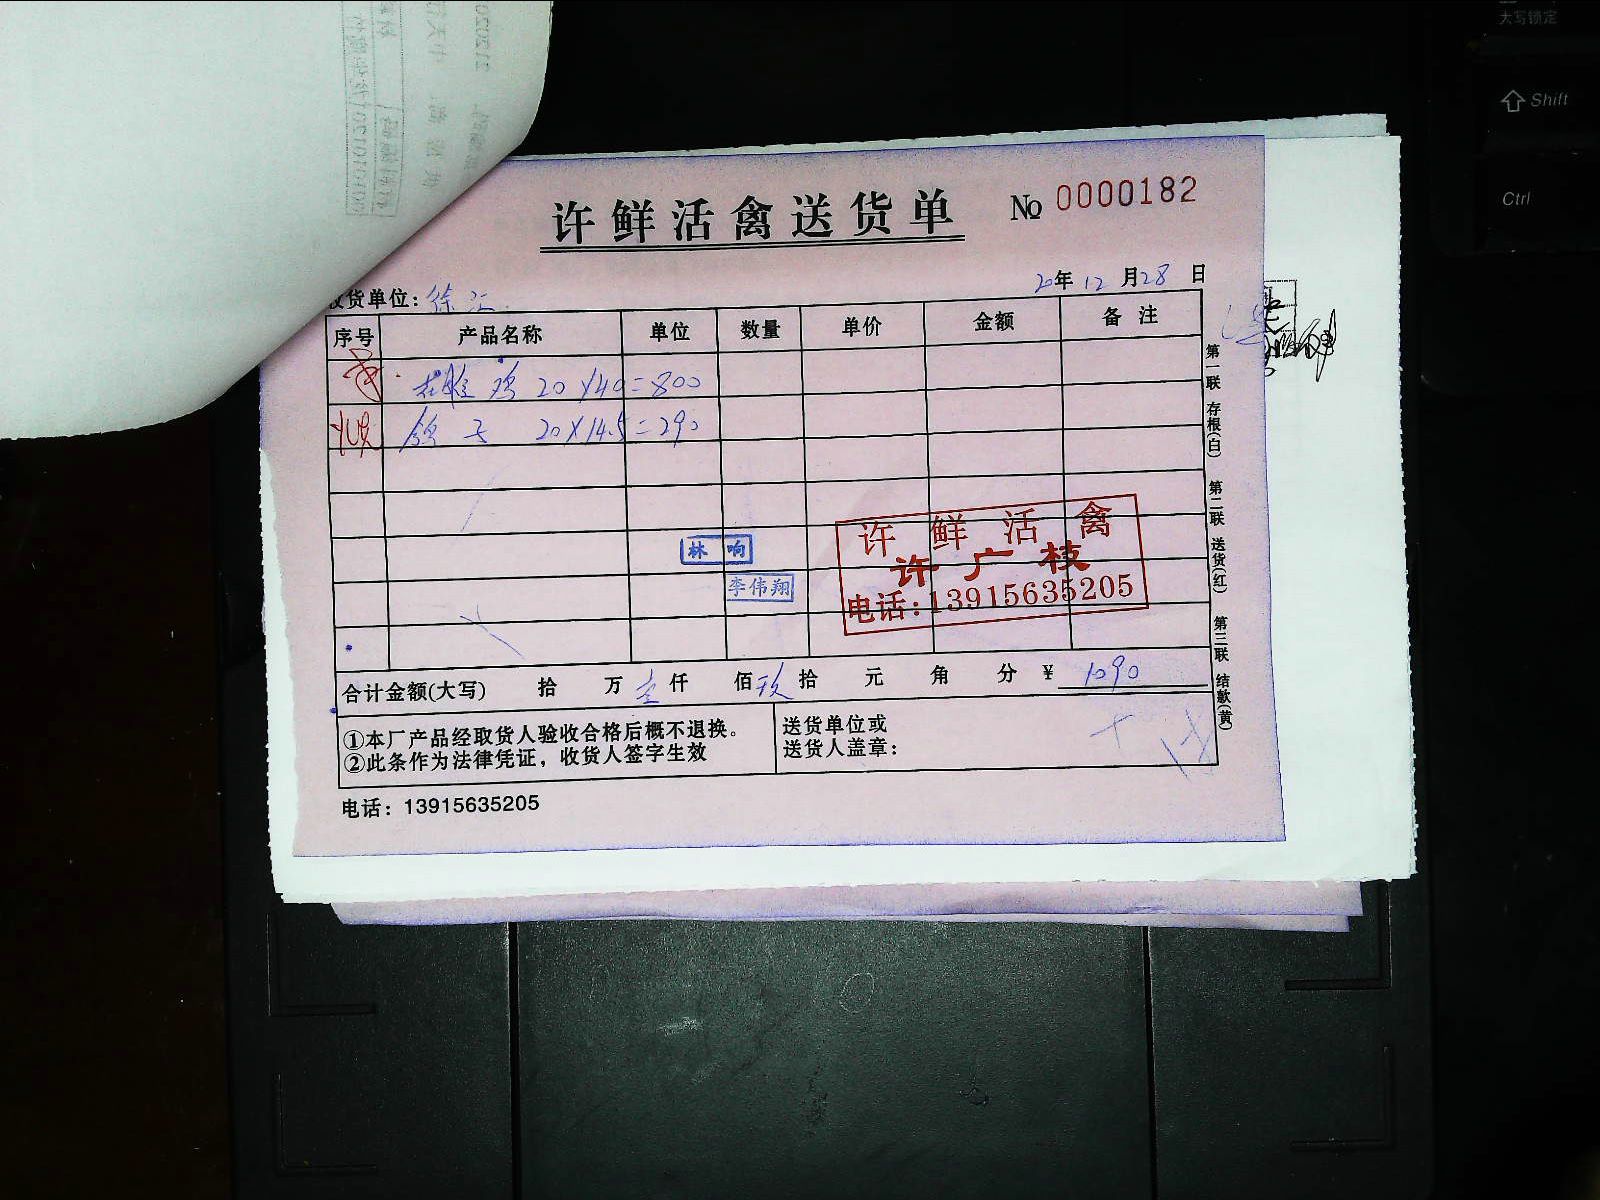 许鲜活禽送货单 № 0000182
20年12月28日
收货单位：徐汇
序号 产品名称 单位 数量 单价 金额 备注
鸡 20×40=800
鸽子 20×14.5=290
林响
李伟翔
许鲜活禽
许广枝
电话:13915635205
合计金额(大写) 拾 万 壹仟 佰 玖拾 元 角 分 ¥ 1090
①本厂产品经取货人验收合格后概不退换。
②此条作为法律凭证，收货人签字生效
送货单位或
送货人盖章：
电话：13915635205
第一联 存根(白) 第二联 送货(红) 第三联 结款(黄)
大写锁定
Shift
Ctrl